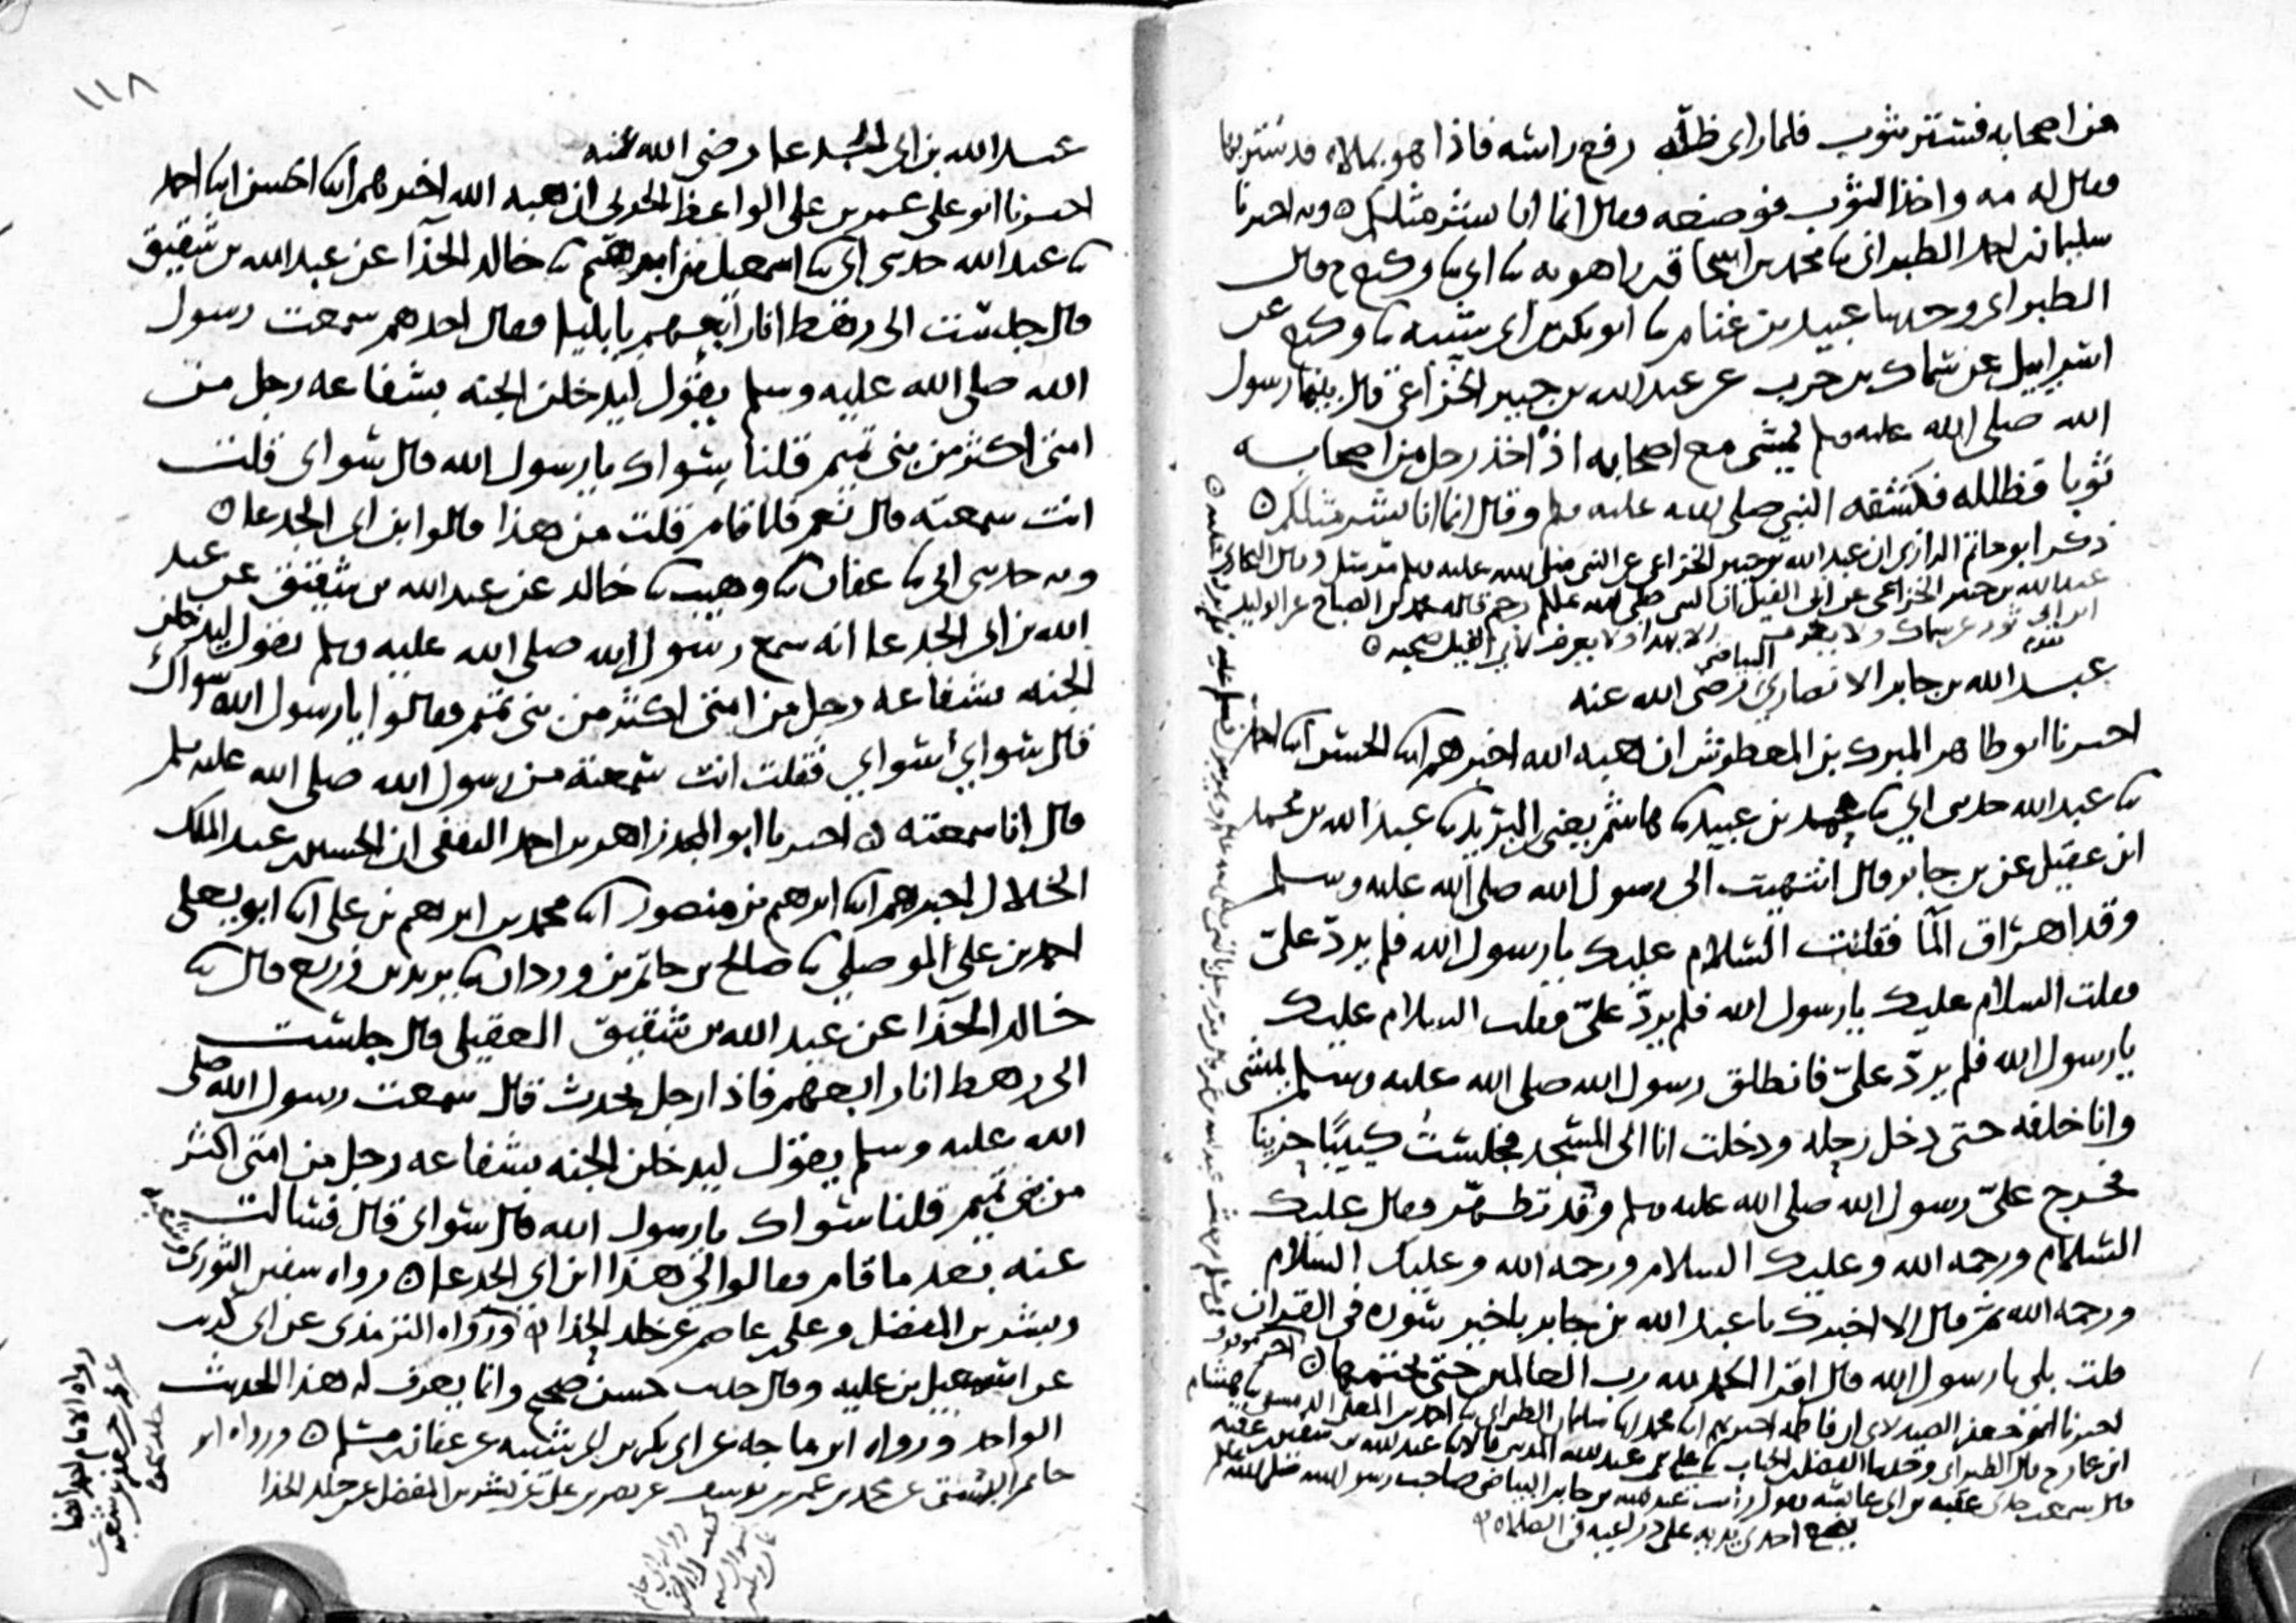 من اصحابه فستر بثوب فلما راى ظله رفع راسه فاذا هو بملاه قد ستر بها
فقال له مه واخذ الثوب فوضعه فقال انما انا بشر مثلكم وبه اخبرنا
سليمان بن احمد الطبراني ثنا محمد بن اسحاق بن راهويه ثنا ابي ثنا وكيع ح وقال
الطبراني وحدثنا عبيد بن غنام ثنا ابو بكر بن ابي شيبه ثنا وكيع عن
اسرائيل عن سماك بن حرب عن عبد الله بن جبير الخزاعي قال بينما رسول
الله صلى الله عليه وسلم يمشي مع اصحابه اذ اخذ رجل من اصحابه
ثوبا فظلله فكشفه النبي صلى الله عليه وسلم وقال انما انا بشر مثلكم
ذكر ابو حاتم الرازي ان عبد الله بن جبير الخزاعي عن النبي صلى الله عليه وسلم مرسل وقال البخاري
عبد الله بن جبير الخزاعي عن ابي الفيل ان النبي صلى الله عليه وسلم رجم قاله محمد بن الصباح عن الوليد
ابن ابي ثور عن سماك ولا يعرف الا بهذا ولا يعرف لابي الفيل صحبه
عبد الله بن جابر الانصاري البياضي رضي الله عنه
اخبرنا ابو طاهر المبرك بن المعطوش ان هبه الله اخبرهم ابنا الحسن ابنا احمد
ثنا عبد الله حدثني ابي ثنا محمد بن عبيد ثنا هاشم يعني ابن البريد ثنا عبد الله بن محمد
ابن عقيل عن بن جابر قال انتهيت الى رسول الله صلى الله عليه وسلم
وقد اهراق المآ فقلت السلام عليك يا رسول الله فلم يردّ عليّ
فقلت السلام عليك يا رسول الله فلم يردّ عليّ فقلت السلام عليك
يا رسول الله فلم يردّ عليّ فانطلق رسول الله صلى الله عليه وسلم يمشي
وانا خلفه حتى دخل رحله ودخلت انا الى المسجد فجلست كيبًا حزينا
فخرج عليّ رسول الله صلى الله عليه وسلم وقد تطهّر فقال عليك
السلام ورحمه الله وعليك السلام ورحمه الله وعليك السلام
ورحمه الله ثم قال الا اخبرك يا عبد الله بن جابر باخير سوره في القران
قلت بلى يا رسول الله قال اقرا الحمد لله رب العالمين حتى تختمها
اخبرنا ابو جعفر الصيدلاني ان فاطمه اخبرتهم ابنا محمد ابنا سليمان الطبراني ثنا احمد بن المعلى الدمشقي ثنا هشام
ابن عمار ح قال الطبراني وحدثنا الفضل بن الحباب ثنا علي بن عبد الله المديني قالا ثنا عبد الله بن
قال سمعت جدي عقبه بن ابي عائشه يقول رايت عبد الله بن جابر البياضي صاحب رسول الله صلى الله عليه وسلم
يضع احدى يديه على ذراعيه في الصلاه
١١٨
عبد الله بن ابي الجدعا رضي الله عنه
اخبرنا ابو علي عمر بن علي الواعظ الحربي ان هبه الله اخبرهم ابنا الحسن ابنا احمد
ثنا عبد الله حدثني ابي ثنا اسمعيل بن ابرهيم ثنا خالد الحذآ عن عبد الله بن شقيق
قال جلست الى رهط انا رابعهم بايليا فقال احدهم سمعت رسول
الله صلى الله عليه وسلم يقول ليدخلن الجنه بشفاعه رجل من
امتي اكثر من بني تميم قلنا سواك يا رسول الله قال سواي قلت
انت سمعته قال نعم فلما قام قلت من هذا قالوا ابن ابي الجدعا
وبه حدثني ابي ثنا عفان ثنا وهيب ثنا خالد عن عبد الله بن شقيق عن عبد
الله بن ابي الجدعا انه سمع رسول الله صلى الله عليه وسلم يقول ليدخلن
الجنه بشفاعه رجل من امتي اكثر من بني تميم فقالوا يا رسول الله سواك
قال سواي سواي فقلت انت سمعته من رسول الله صلى الله عليه وسلم
قال انا سمعته اخبرنا ابو المجد زاهر بن احمد الثقفي ان الحسين بن عبد الملك
الخلال اخبرهم ابنا ابرهيم بن منصور ابنا محمد بن ابرهيم بن علي ابنا ابو يعلى
احمد بن علي الموصلي ثنا صالح بن حاتم بن وردان ثنا يزيد بن زريع قال ثنا
خالد الحذآ عن عبد الله بن شقيق العقيلي قال جلست
الى رهط انا رابعهم فاذا رجل يحدث قال سمعت رسول الله صلى
الله عليه وسلم يقول ليدخلن الجنه بشفاعه رجل من امتي اكثر
من بني تميم قلنا سواك يا رسول الله قال سواي قال فسالت
عنه بعد ما قام فقالوا لي هذا ابن ابي الجدعا رواه سفين الثوري
وبشر بن المفضل وعلي بن عاصم عن خلد الحذا ورواه الترمذي عن ابي كريب
عن اسمعيل بن عليه وقال حديث حسن صحيح وانما يعرف له هذا الحديث
الواحد ورواه ابن ماجه عن ابي بكر بن ابي شيبه عن عفان بن مسلم ورواه ابو
حاتم البستي عن محمد بن عمر بن يوسف عن نصر بن علي عن بشر بن المفضل عن خلد الحذا
رواه الامام احمد ايضا
عن محمد بن جعفر عن شعبه